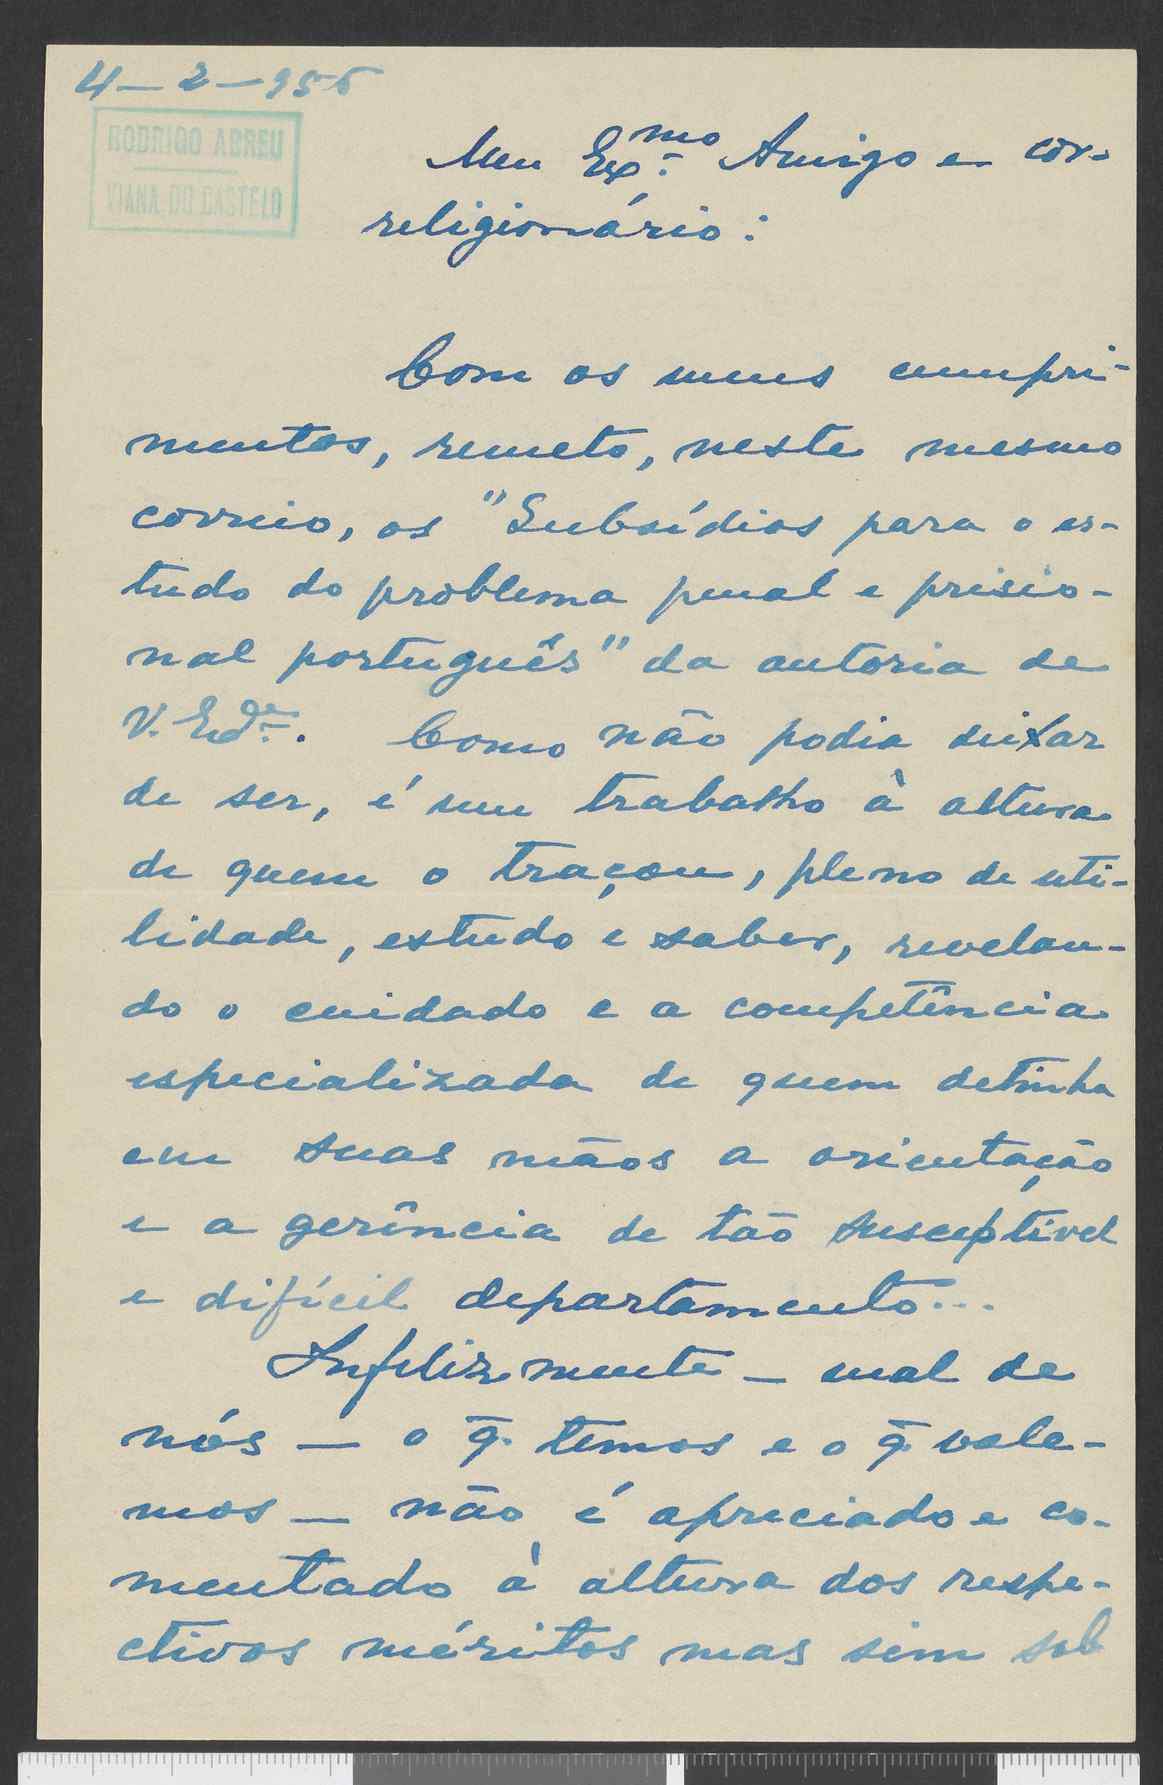 4-2-956
RODRIGO ABREU
VIANA DO CASTELO
Meu Exmo. Amigo e cor-
religionário:
Com os meus cumpri-
mentos, remeto, neste mesmo
correio, os "Subsídios para o es-
tudo do problema penal e prisio-
nal português" da autoria de
V.
Como não podia deixar
de ser, é um trabalho à altura
de quem o traçou, pleno de uti-
lidade, estudo e saber, revelan-
do o cuidado e a competência
especializada de quem detinha
em suas mãos a orientação
e a gerência de tão susceptível
e difícil departamento...
Infelizmente — mal de
nós — o q̃. temos e o q̃. vale-
mos — não é apreciado e co-
mentado à altura dos respe-
ctivos méritos mas sim sob